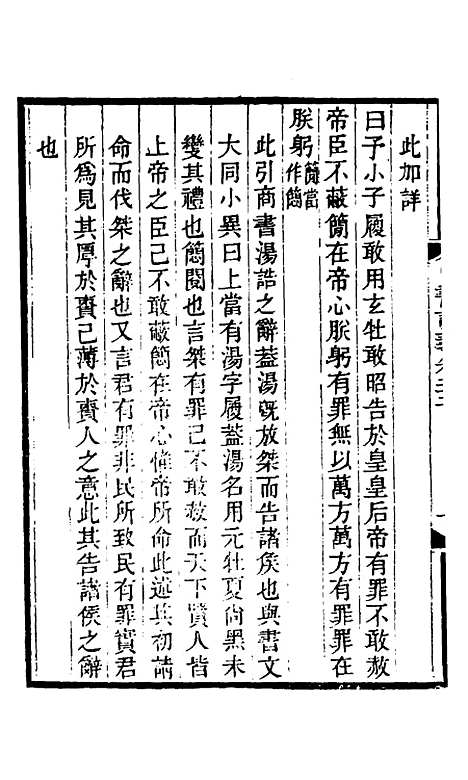 此加詳
曰予小子履敢用玄牡敢昭告於皇皇后帝有罪不敢赦
帝臣不蔽簡在帝心朕躬有罪無以萬方萬方有罪罪在
朕躬簡當作簡
此引商書湯誥之辭葢湯旣放桀而告諸侯也與書文
大同小異曰上當有湯字履葢湯名用元牡夏尚黑未
變其禮也簡閱也言桀有罪己不敢赦而天下賢人皆
上帝之臣己不敢蔽簡在帝心惟帝所命此述其初請
命而伐桀之辭也又言君有罪非民所致民有罪實君
所爲見其厚於責己薄於責人之意此其告諸侯之辭
也